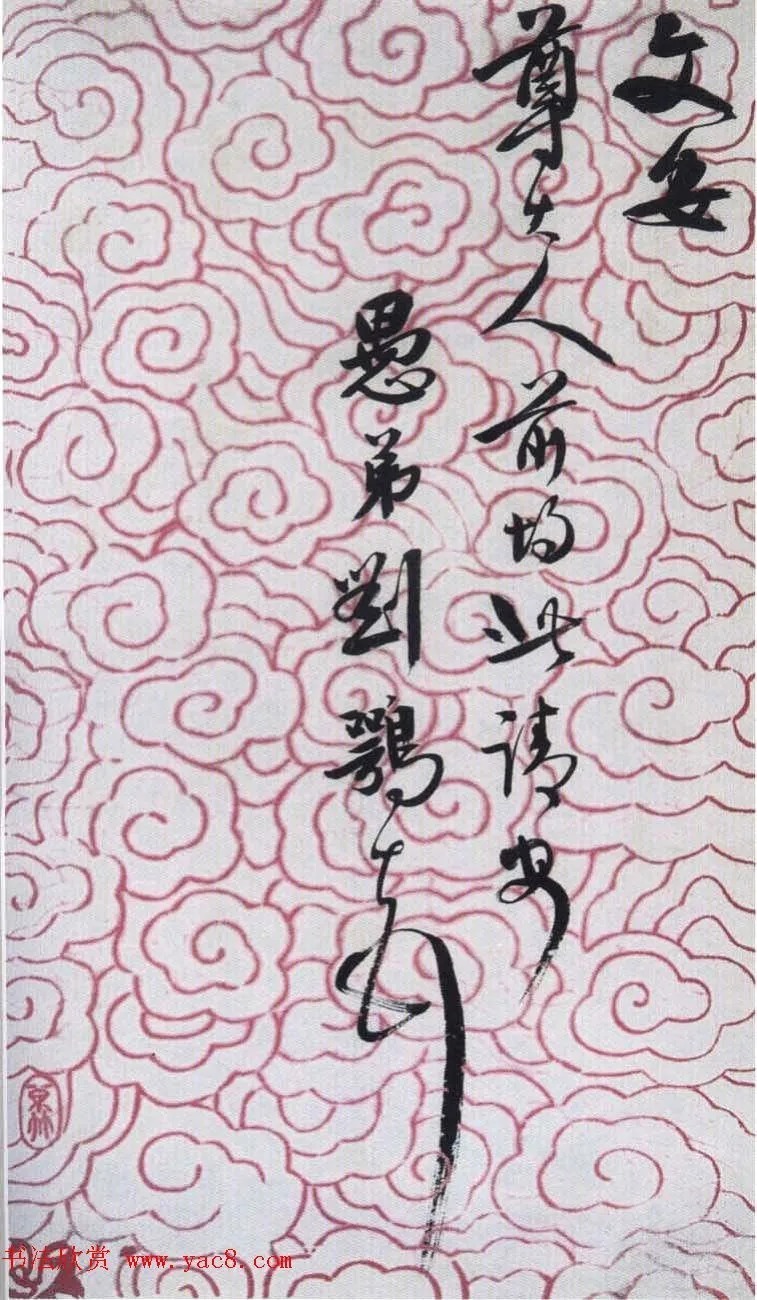 文安
尊大人前均此請安
愚弟劉鶚頓
書法欣赏 www.yac8.com